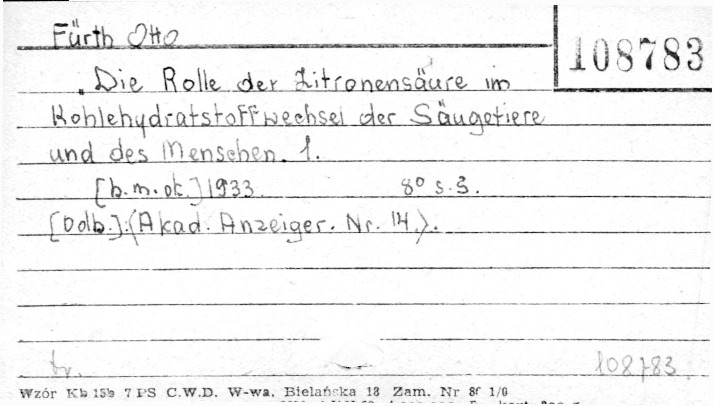 Fürth Otto
108783
Die Rolle der Zitronensäure im
Kohlehydratstoffwechsel der Säugetiere
und des Menschen. 1.
[b.m.dr.] 1933. 8° s. 3.
[Odb.]: (Akad. Anzeiger. Nr. 14.).
tr. 108783.
Wzór Kb 15b 7 PS C.W.D. W-wa, Bielańska 18 Zam. Nr 8f 1/0